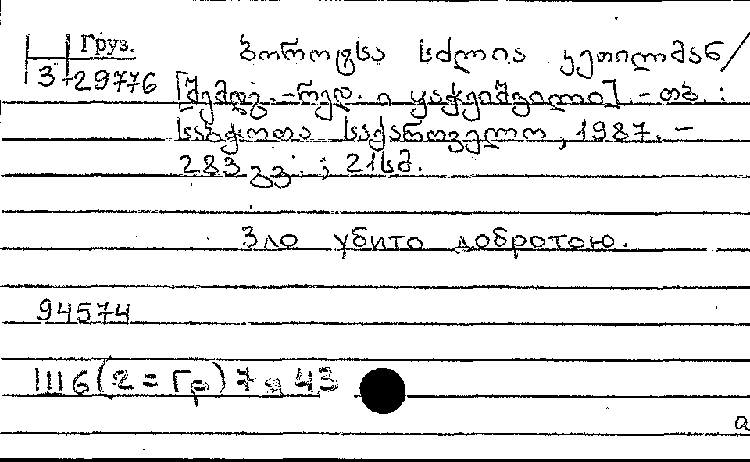 Груз.
3-29776
ბოროტსა სძლია კეთილმან /
[შემდგ.-რედ. ი. ყაჭეიშვილი]. - თბ. :
საბჭოთა საქართველო, 1987. -
283 გვ. ; 21 სმ.
Зло убито добротою.
94574
1116(2=Гр)7я43
а